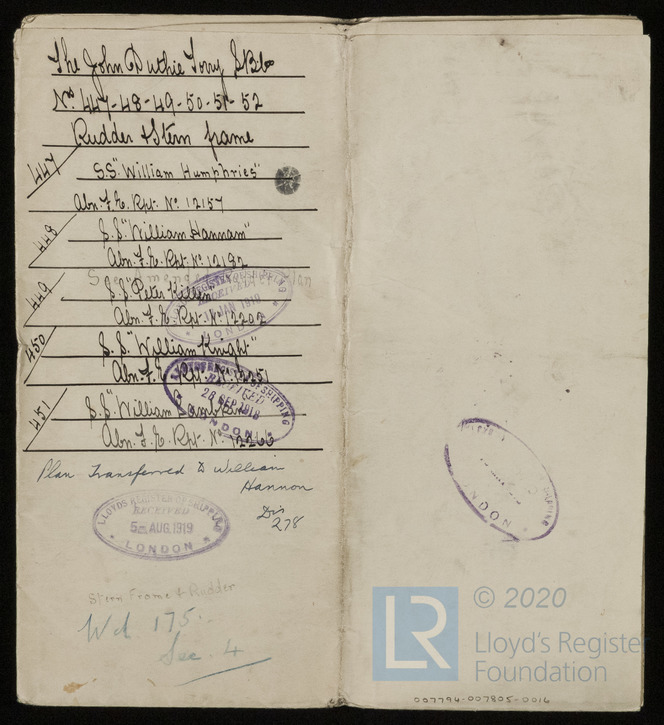 The John Duthie Torry S.B. Co
No. 447-48-49-50-51-52
Rudder & Stern frame
447
S.S. "William Humphries"
Abn. F.E. Rpt. No. 12157
448
S.S. "William Hannam"
Abn. F.E. Rpt. No. 12192
See Amended Plan
449
S.S. "Peter Killen"
Abn. F.E. Rpt. No. 12202
LLOYDS REGISTER OF SHIPPING
RECEIVED
JAN 1919
LONDON
450
S.S. "William Knight"
Abn. F.E. Rpt. No. 12251
LLOYDS REGISTER OF SHIPPING
RECEIVED
26 SEP 1918
LONDON
451
S.S. "William
Abn. F.E. Rpt. No. 12266
Plan Transferred to William
Hannon
Dis
278
LLOYDS REGISTER OF SHIPPING
RECEIVED
5 AUG. 1919
LONDON
Stern Frame & Rudder
Wd 175.
Sec. 4
SHIPPING
LONDON
LR
© 2020
Lloyd's Register
Foundation
007794-007805-0016